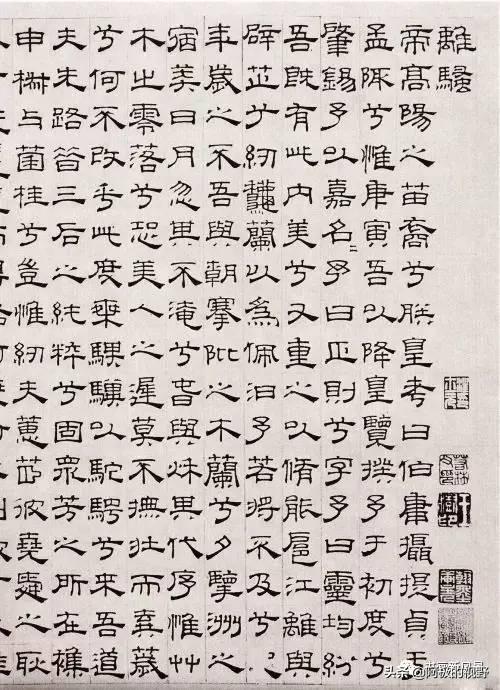 離騷
帝高陽之苗裔兮朕皇考曰伯庸攝提貞于
孟陬兮惟庚寅吾以降皇覽揆予于初度兮
肇錫予以嘉名予曰正則兮字予曰靈均紛
吾旣有此内美兮又重之以脩能扈江離與
辟芷兮紉龝蘭以爲佩汩予若將不及兮
年歲之不吾與朝搴阰之木蘭兮夕擥洲之
宿莽日月忽其不淹兮春與秋其代序惟艸
木之零落兮恐美人之遲莫不撫壯而棄薉
兮何不改乎此度椉騏驥以駝騁兮來吾道
夫先路昔三后之純粹兮固衆芳之所在襍
申椒与菌桂兮豈惟紉夫蕙茝彼堯舜之耿